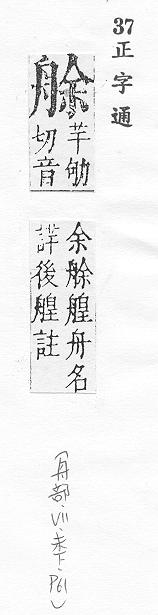 37正字通
艅
芊劬
切音
余艅艎舟名
詳後艎註
(舟部·VII·未下·P61)